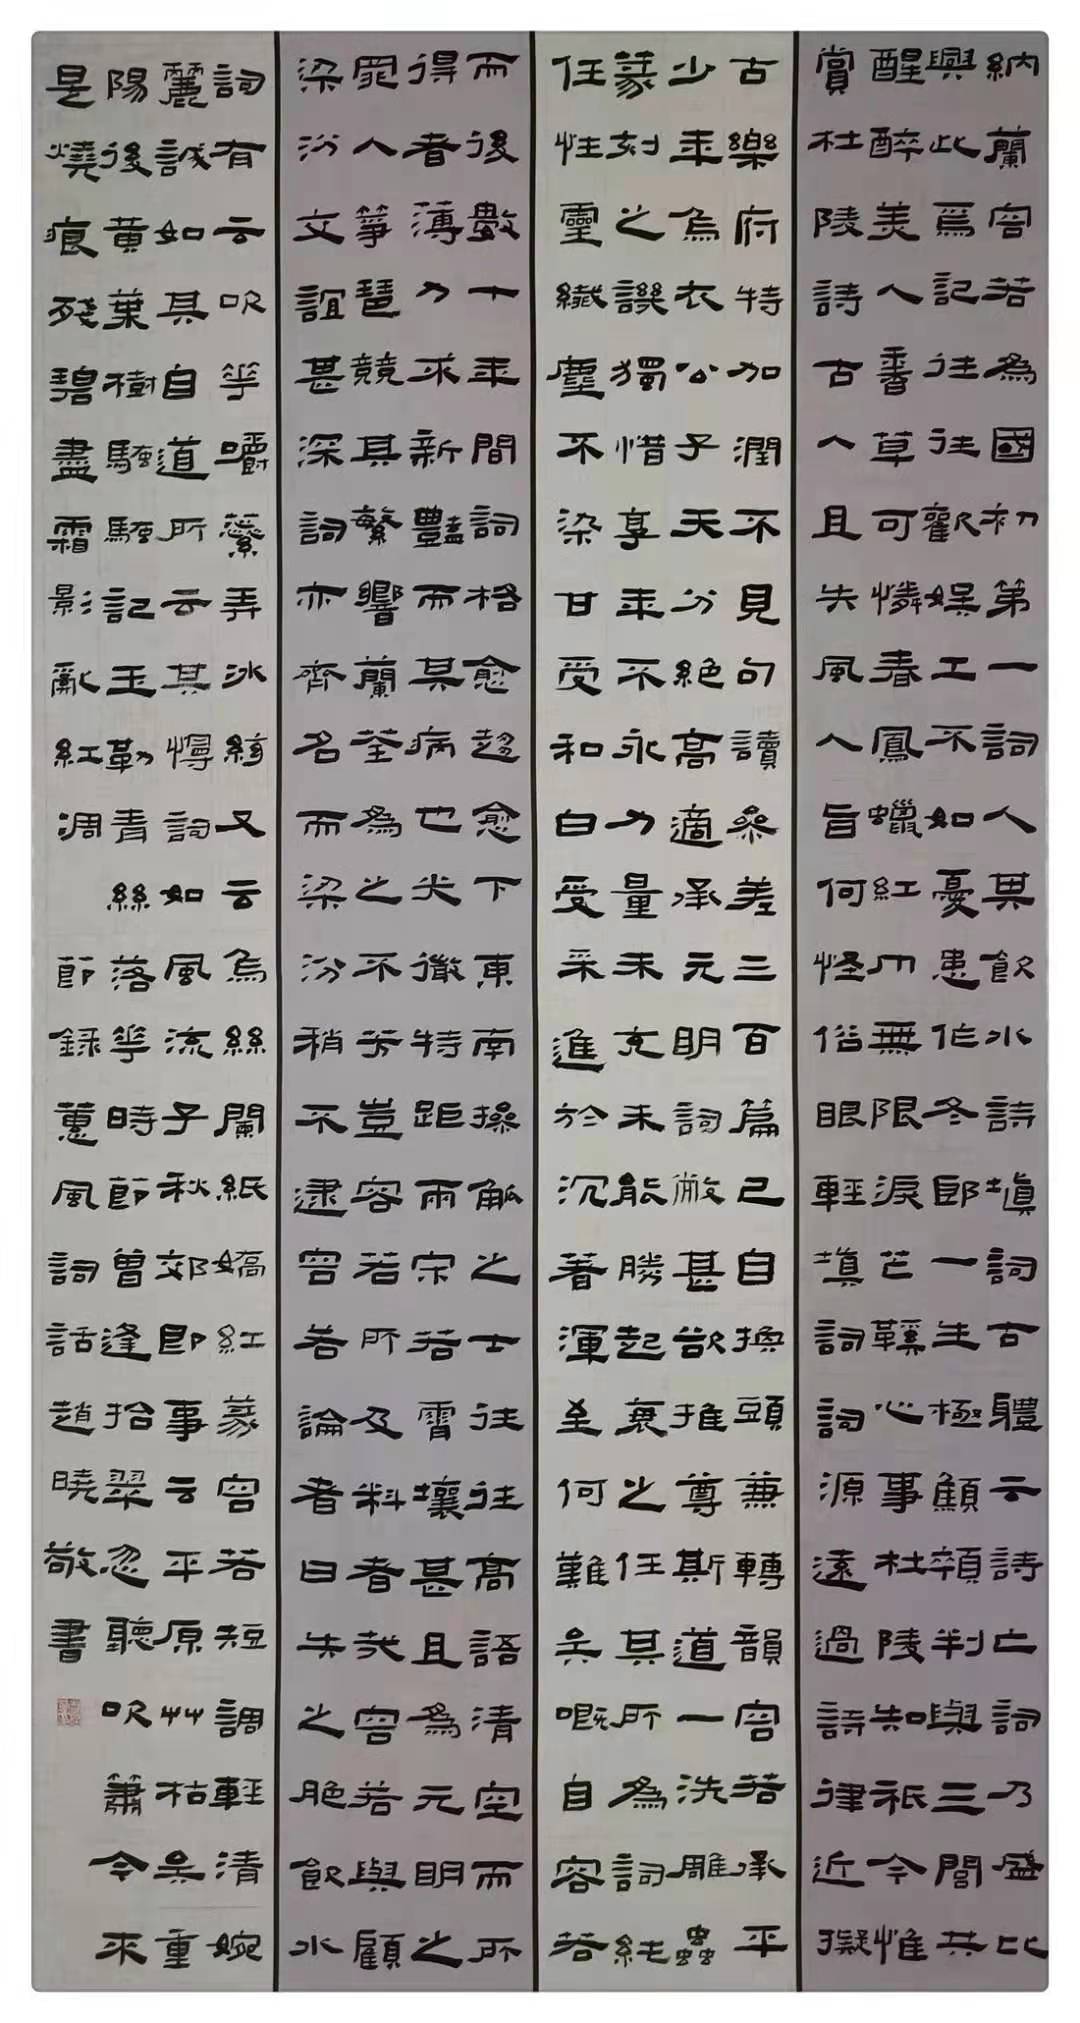 納蘭容若為國初第一詞人其飲水詩填詞古體云詩亡詞乃盛比
興此為記往往歡娛工不如憂患作冬郎一生極顦顇判與三閭共
醒醉美人香草可憐春鳳蠟紅巾無限淚芒鞵心事杜陵知祇今惟
賞杜陵詩古人且失風人旨何怪俗眼輕填詞詞源遠過詩律近擬
古樂府特加潤不見句讀參差三百篇已自換頭兼轉韻容若承平
少年烏衣公子天分絕高適承元明詞敝甚欲推尊斯道一洗雕蟲
篆刻之譏獨惜享年不永力量未充未能勝起衰之任其所為詞純
任性靈纖塵不染甘受和白受采進於沉著渾至何難矣嘅自容若
而後數十年間詞格愈趨愈下東南操觚之士往往高語清空而所
得者薄力求新豔而其病也尖微特距兩宋若霄壤甚且為元明之
罪人箏琶競其繁響蘭荃為之不芳豈容若所及料者哉容若與顧
梁汾文誼甚深詞亦齊名而梁汾稍不逮容若論者曰失之脃飲水
詞有云吹花嚼蕊弄冰絃又云烏絲闌紙嬌紅篆容若短調輕清婉
麗誠如其自道所云其慢詞如風流子秋郊即事云平原艸枯矣重
陽後黃葉樹騷騷記玉勒青絲落花時節曾逢拾翠忽聽吹簫今來
是燒痕殘碧盡霜影亂紅凋 節錄蕙風詞話趙曉敬書